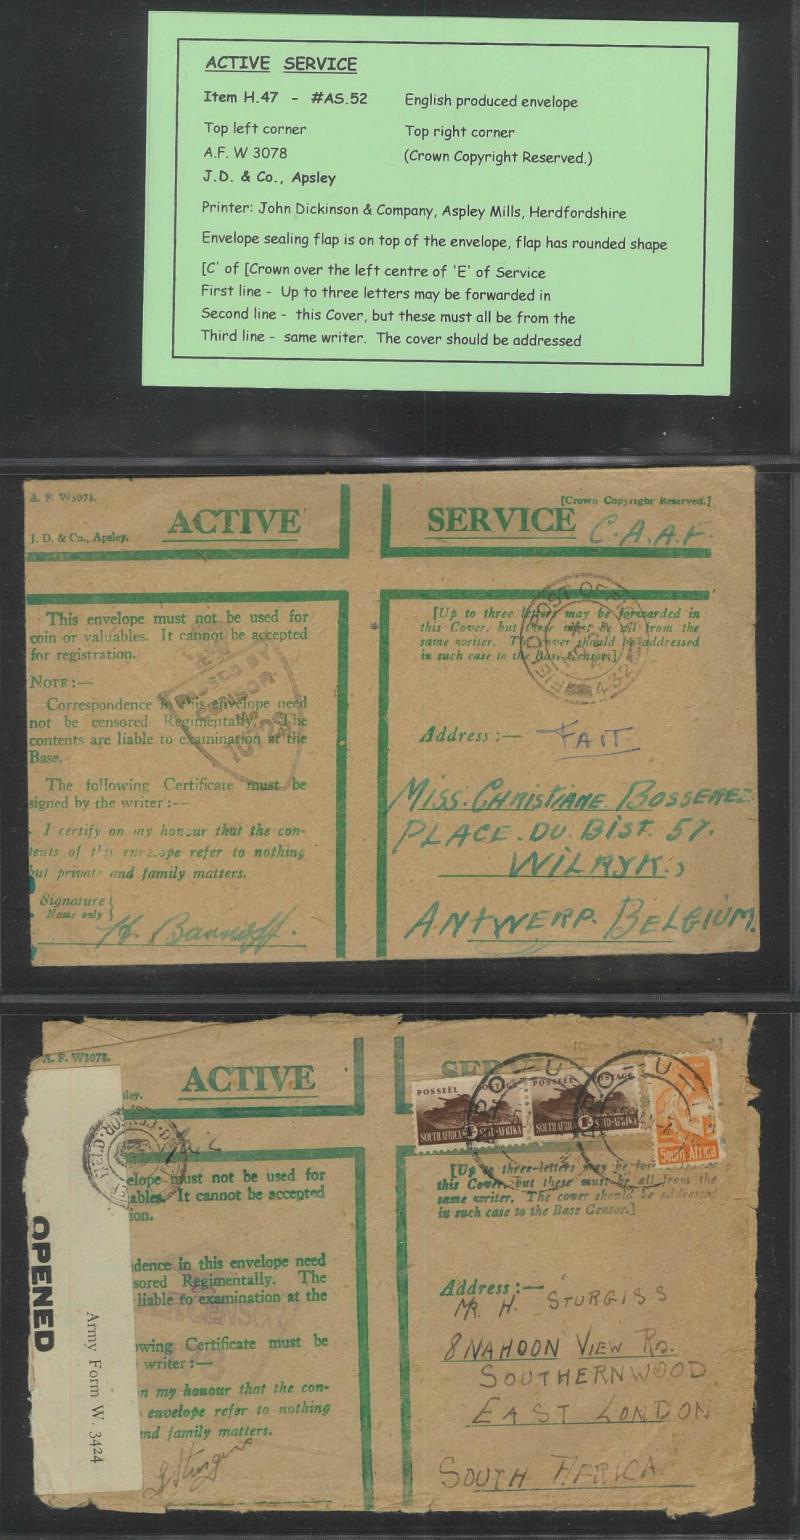 ACTIVE SERVICE
Item H.47 - #AS.52 English produced envelope
Top left corner Top right corner
A.F. W 3078 (Crown Copyright Reserved.)
J.D. & Co., Apsley
Printer: John Dickinson & Company, Aspley Mills, Herdfordshire
Envelope sealing flap is on top of the envelope, flap has rounded shape
[C' of [Crown over the left centre of 'E' of Service
First line - Up to three letters may be forwarded in
Second line - this Cover, but these must all be from the
Third line - same writer. The cover should be addressed
A. F. W3078. [Crown Copyright Reserved.]
J. D. & Co., Apsley. ACTIVE SERVICE C.A.A.F.
This envelope must not be used for
coin or valuables. It cannot be accepted
for registration.
NOTE:—
Correspondence in this envelope need
not be censored Regimentally. The
contents are liable to examination at the
Base.
The following Certificate must be
signed by the writer:—
I certify on my honour that the con-
tents of this envelope refer to nothing
but private and family matters.
Signature
Name only
PASSED BY
CENSOR
No
FIELD POST OFFICE
432
[Up to three letters may be forwarded in
this Cover, but these must be all from the
same writer. The cover should be addressed
in such case to the Base Censor.]
Address:—
MISS. CHRISTIANE
PLACE. DU. BIST. 57.
WILRYK.,
ANTWERP. BELGIUM.
A. F. W3078.
ley. ACTIVE SERVICE
POSSEËL POSTAGE POSSEËL POSTAGE
SOUTH AFRICA SUID-AFRIKA SOUTH AFRICA SUID-AFRIKA
South Africa
elope must not be used for
ables. It cannot be accepted
ion.
dence in this envelope need
sored Regimentally. The
liable to examination at the
wing Certificate must be
writer:—
n my honour that the con-
envelope refer to nothing
and family matters.
OPENED
Army Form W. 3424
[Up to three letters may be
this Cover, but these must be all from the
same writer. The cover should be addressed
in such case to the Base Censor.]
Address:—
MR. H. STURGISS
8 NAHOON VIEW RD.
SOUTHERNWOOD
EAST LONDON
SOUTH AFRICA